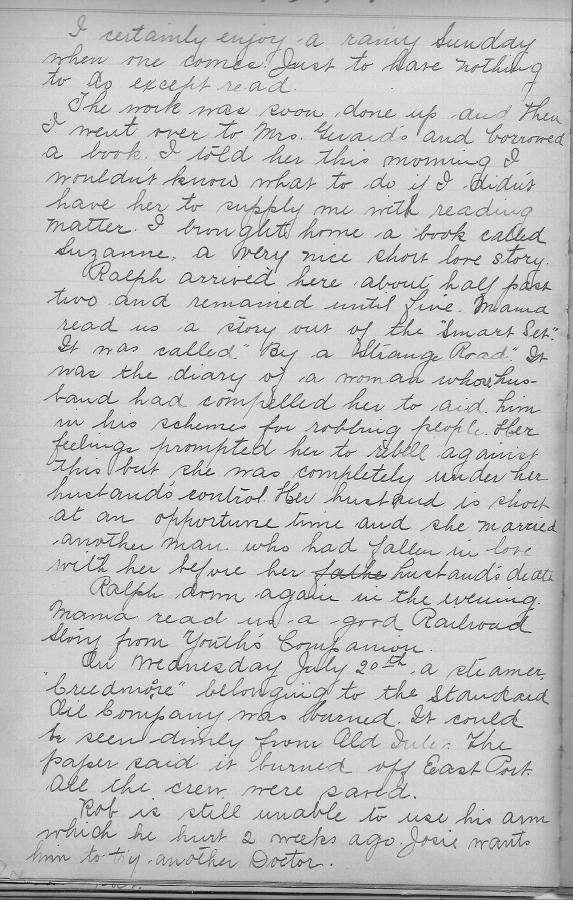 I certainly enjoy a rainy Sunday
when one comes. Just to have nothing
to do except read.
The work was soon done up and then
I went over to Mrs. Guard's and borrowed
a book. I told her this morning I
wouldn't know what to do if I didn't
have her to supply me with reading
matter. I brought home a book called
Suzanne, a very nice short love story.
Ralph arrived here about half past
two and remained until five. Mama
read us a story out of the "Smart Set".
It was called "By a Strange Road". It
was the diary of a woman whose hus-
band had compelled her to aid him
in his schemes for robbing people. Her
feelings prompted her to rebell against
this but she was completely under her
husband's control. Her husband is shot
at an opportune time and she married
another man who had fallen in love
with her before her husband's death
Ralph down again in the evening.
Mama read us a good Railroad
Story from Youth's Companion.
On Wednesday July 20th a steamer,
"Creedmore" belonging to the Standard
Oil Company was burned. It could
be seen dimly from Old The
paper said it burned off East Port.
All the crew were saved.
Rob is still unable to use his arm
which he hurt 2 weeks ago. Josie wants
him to try another Doctor.